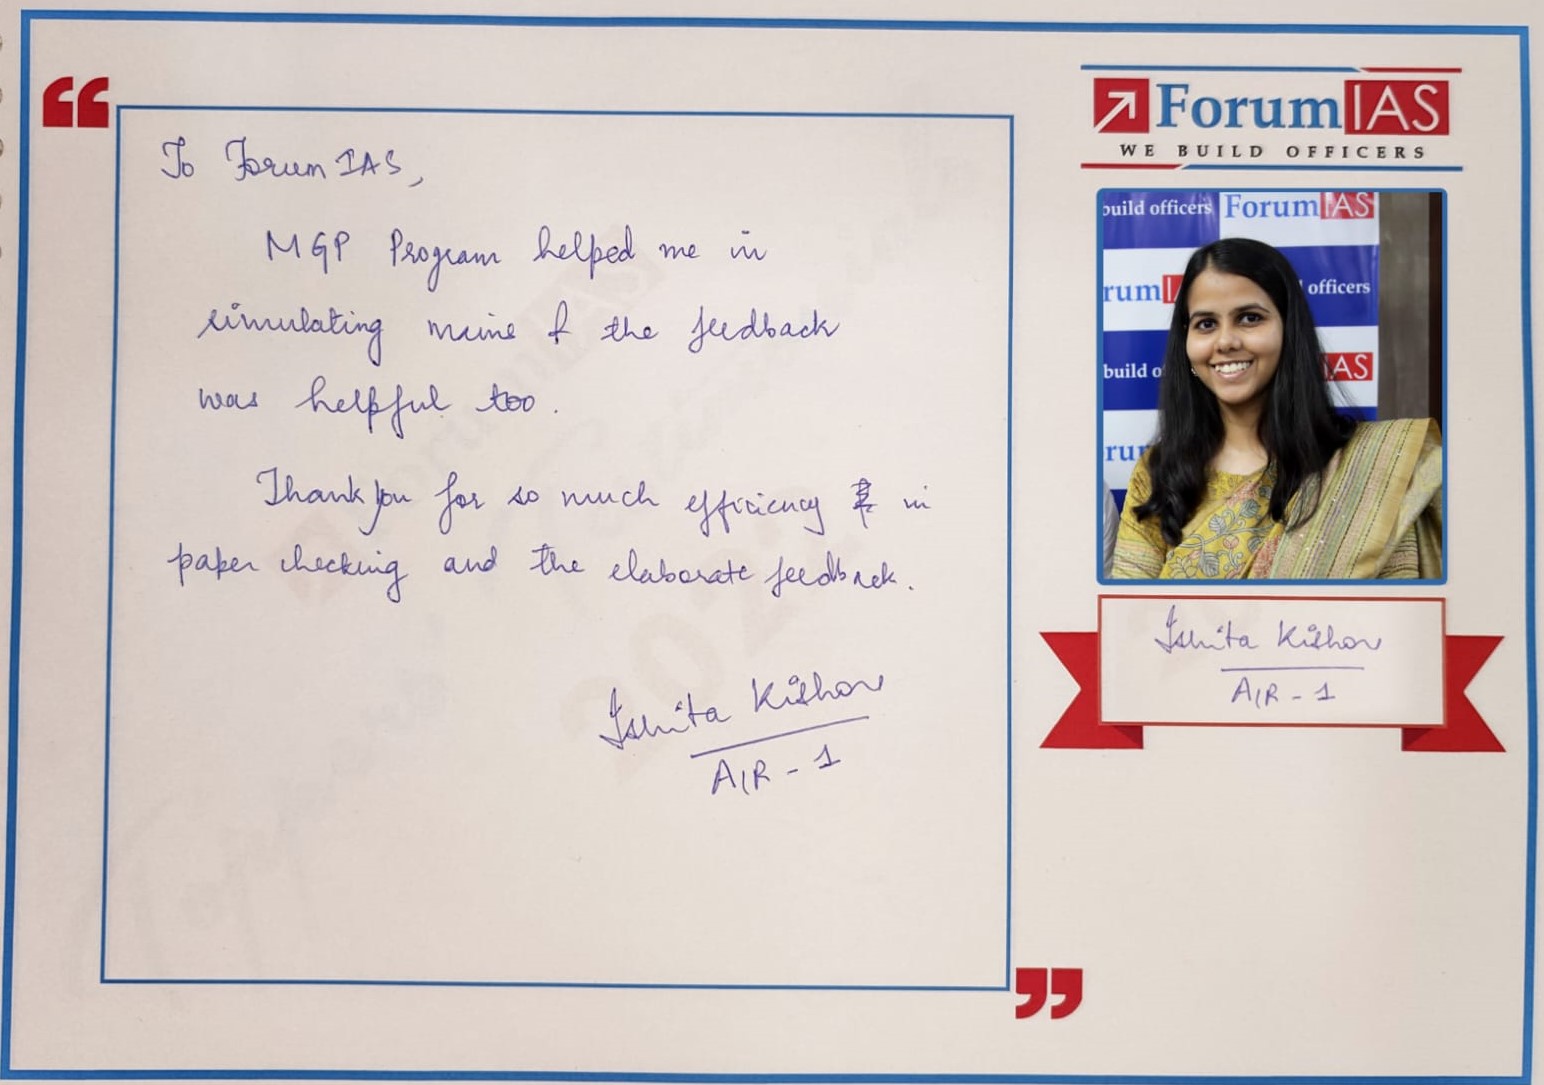 To Forum IAS,
MGP Program helped me in
simulating mains & the feedback
was helpful too.
Thank you for so much efficiency in
paper checking and the elaborate feedback.
Ishita Kishore
AIR - 1
ForumIAS
WE BUILD OFFICERS
build officers ForumIAS
rumI officers
build o IAS
rum
Ishita Kishore
AIR - 1